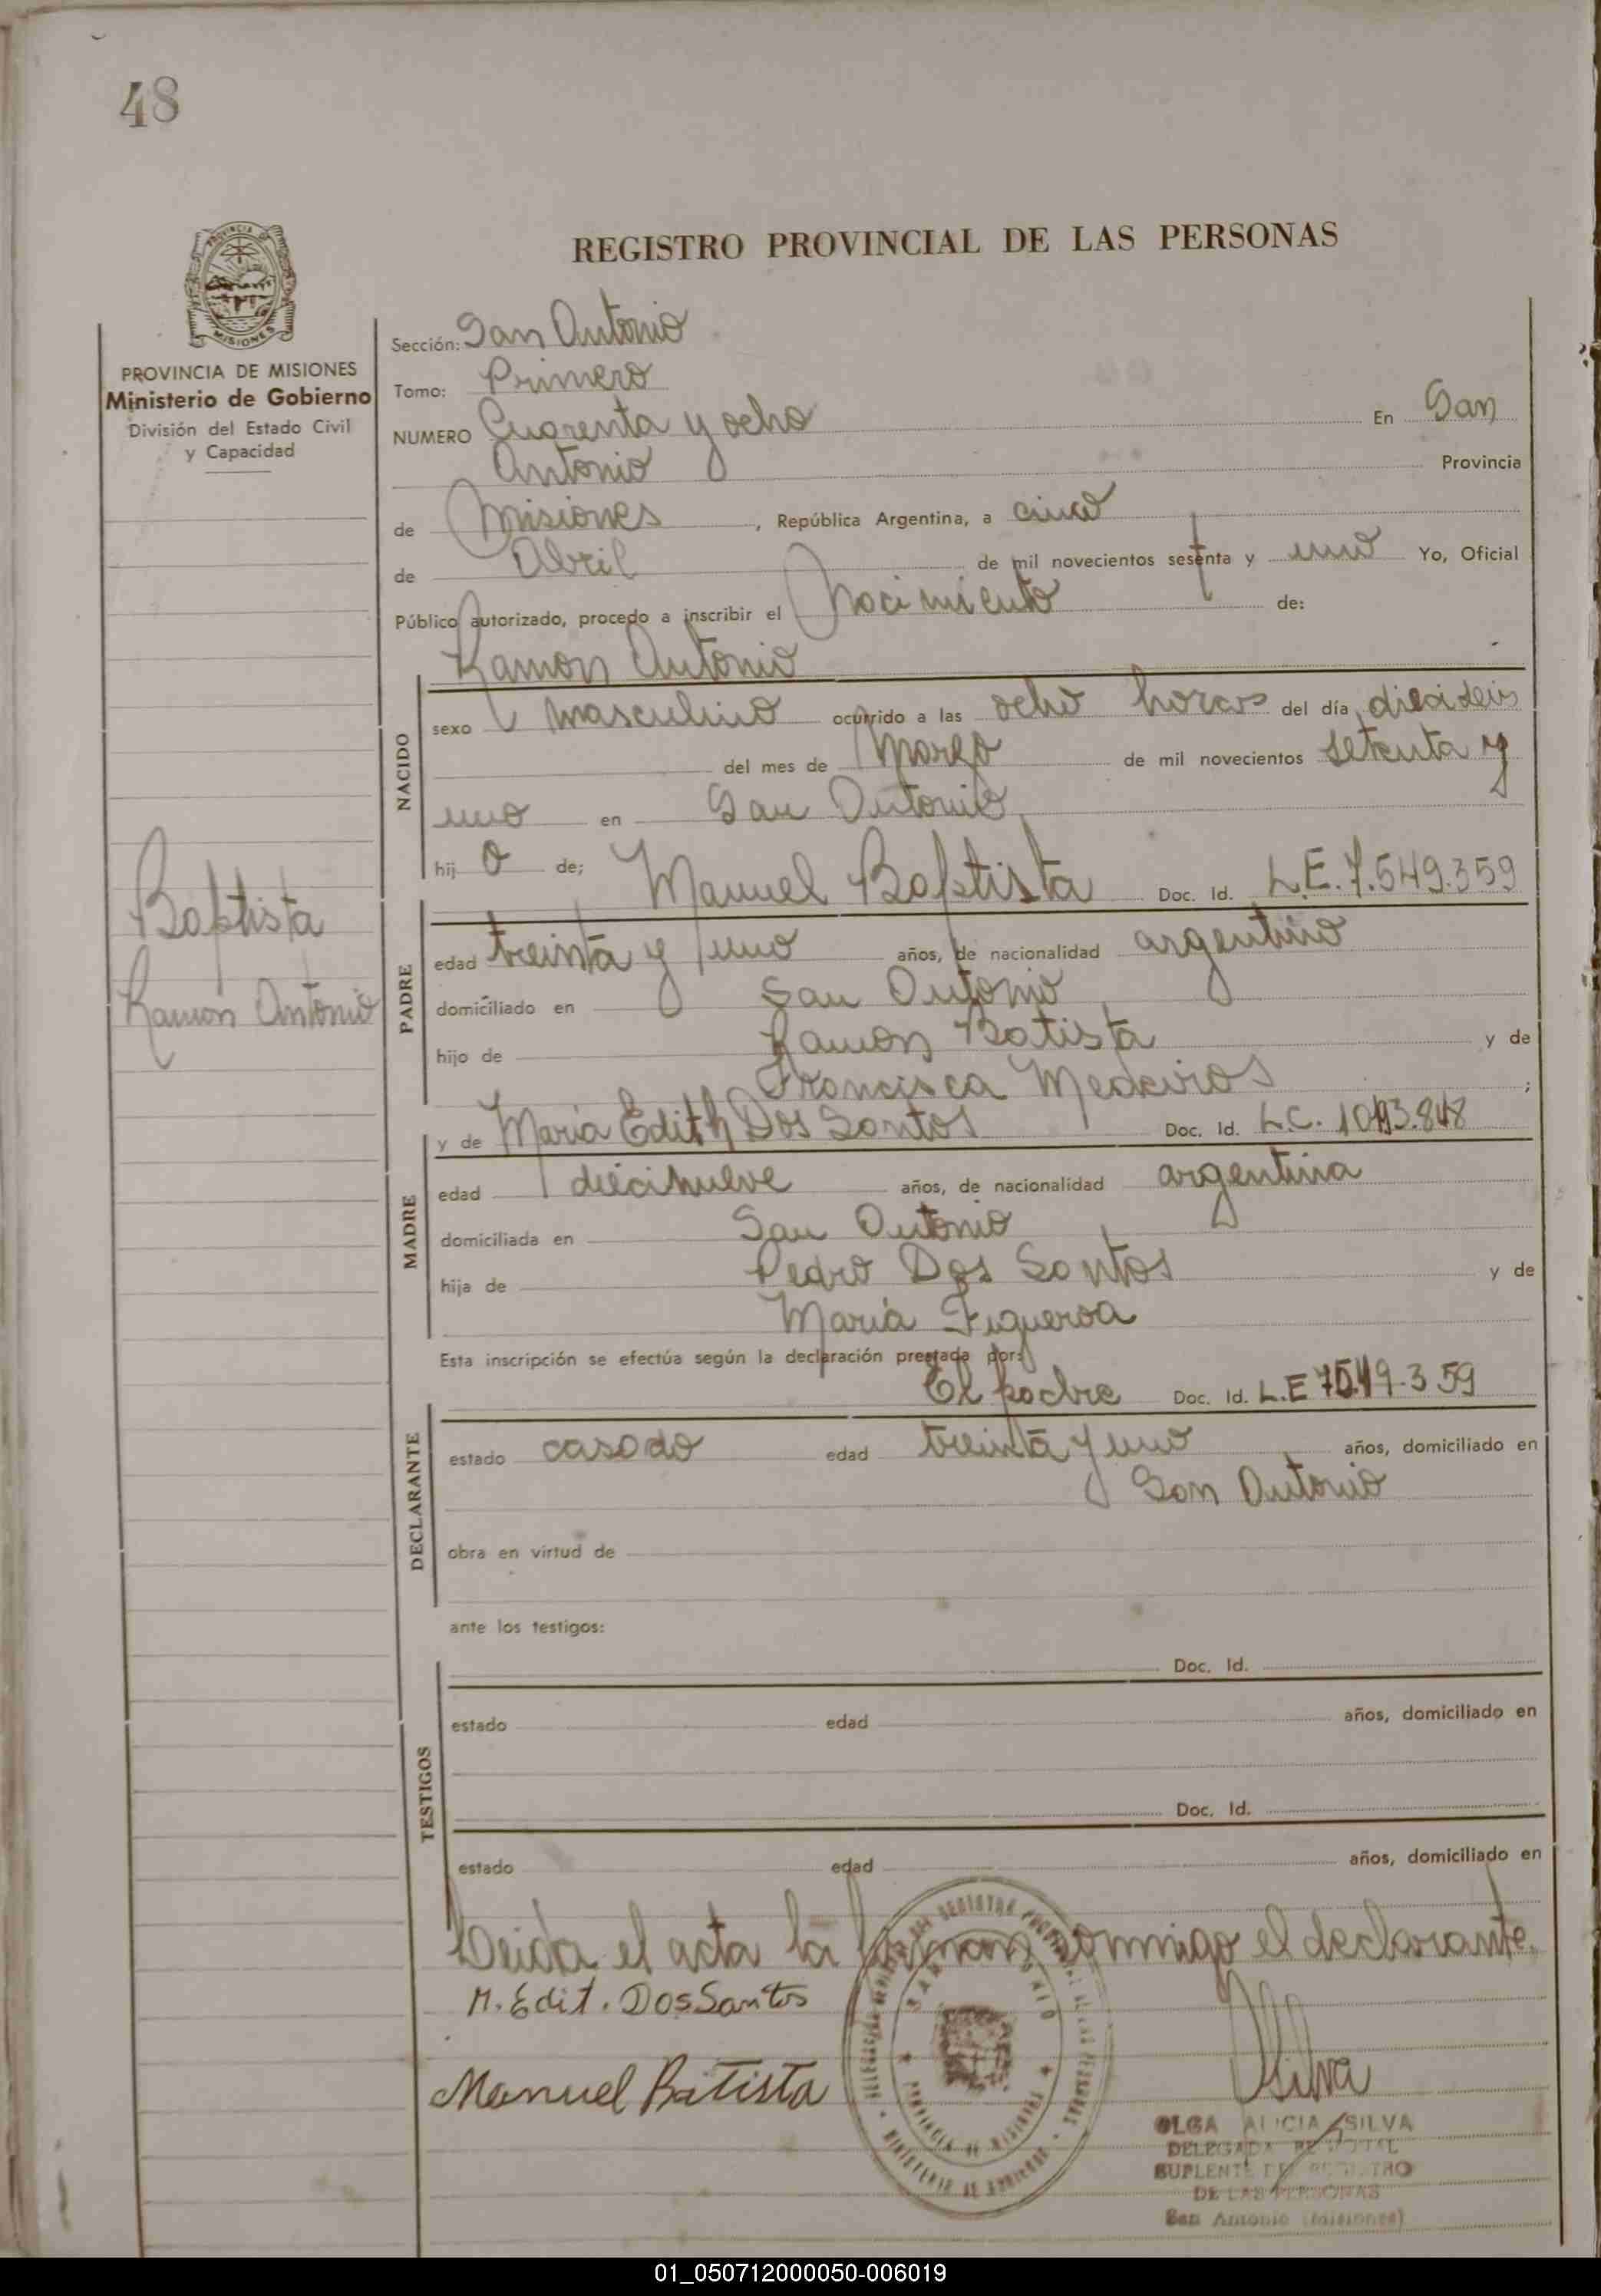 48
REGISTRO PROVINCIAL DE LAS PERSONAS
PROVINCIA DE MISIONES
Ministerio de Gobierno
División del Estado Civil
y Capacidad
Sección: San Antonio
Tomo: Primero
NUMERO Cuarenta y ocho En San
Antonio Provincia
de Misiones, República Argentina, a cinco
de Abril de mil novecientos sesenta y uno Yo, Oficial
Público autorizado, procedo a inscribir el Nacimiento de:
Ramon Antonio
NACIDO
sexo masculino ocurrido a las ocho horas del día dieciseis
del mes de Marzo de mil novecientos setenta y
uno en San Antonio
hij o de; Manuel Baptista Doc. Id. L.E. 7.549.359
Baptista
Ramón Antonio
PADRE
edad treinta y uno años, de nacionalidad argentino
domiciliado en San Antonio
hijo de Ramon Batista y de
Francisca Medeiros ;
y de Maria Edith Dos Santos Doc. Id. L.C.
MADRE
edad diecinueve años, de nacionalidad argentina
domiciliada en San Antonio
hija de Pedro Dos Santos y de
María Figueroa
Esta inscripción se efectúa según la declaración prestada por:
El padre Doc. Id. L.E 7549.359
DECLARANTE
estado casado edad treinta y uno años, domiciliado en
San Antonio
obra en virtud de
ante los testigos:
Doc. Id.
TESTIGOS
estado edad años, domiciliado en
Doc. Id.
estado edad años, domiciliado en
Leida el acta la firman conmigo el declarante.
M. Edit. Dos Santos
Manuel Batista
Silva
OLGA ALICIA SILVA
DELEGADA
SUPLENTE DEL REGISTRO
DE LAS PERSONAS
San Antonio (Misiones)
01_050712000050-006019